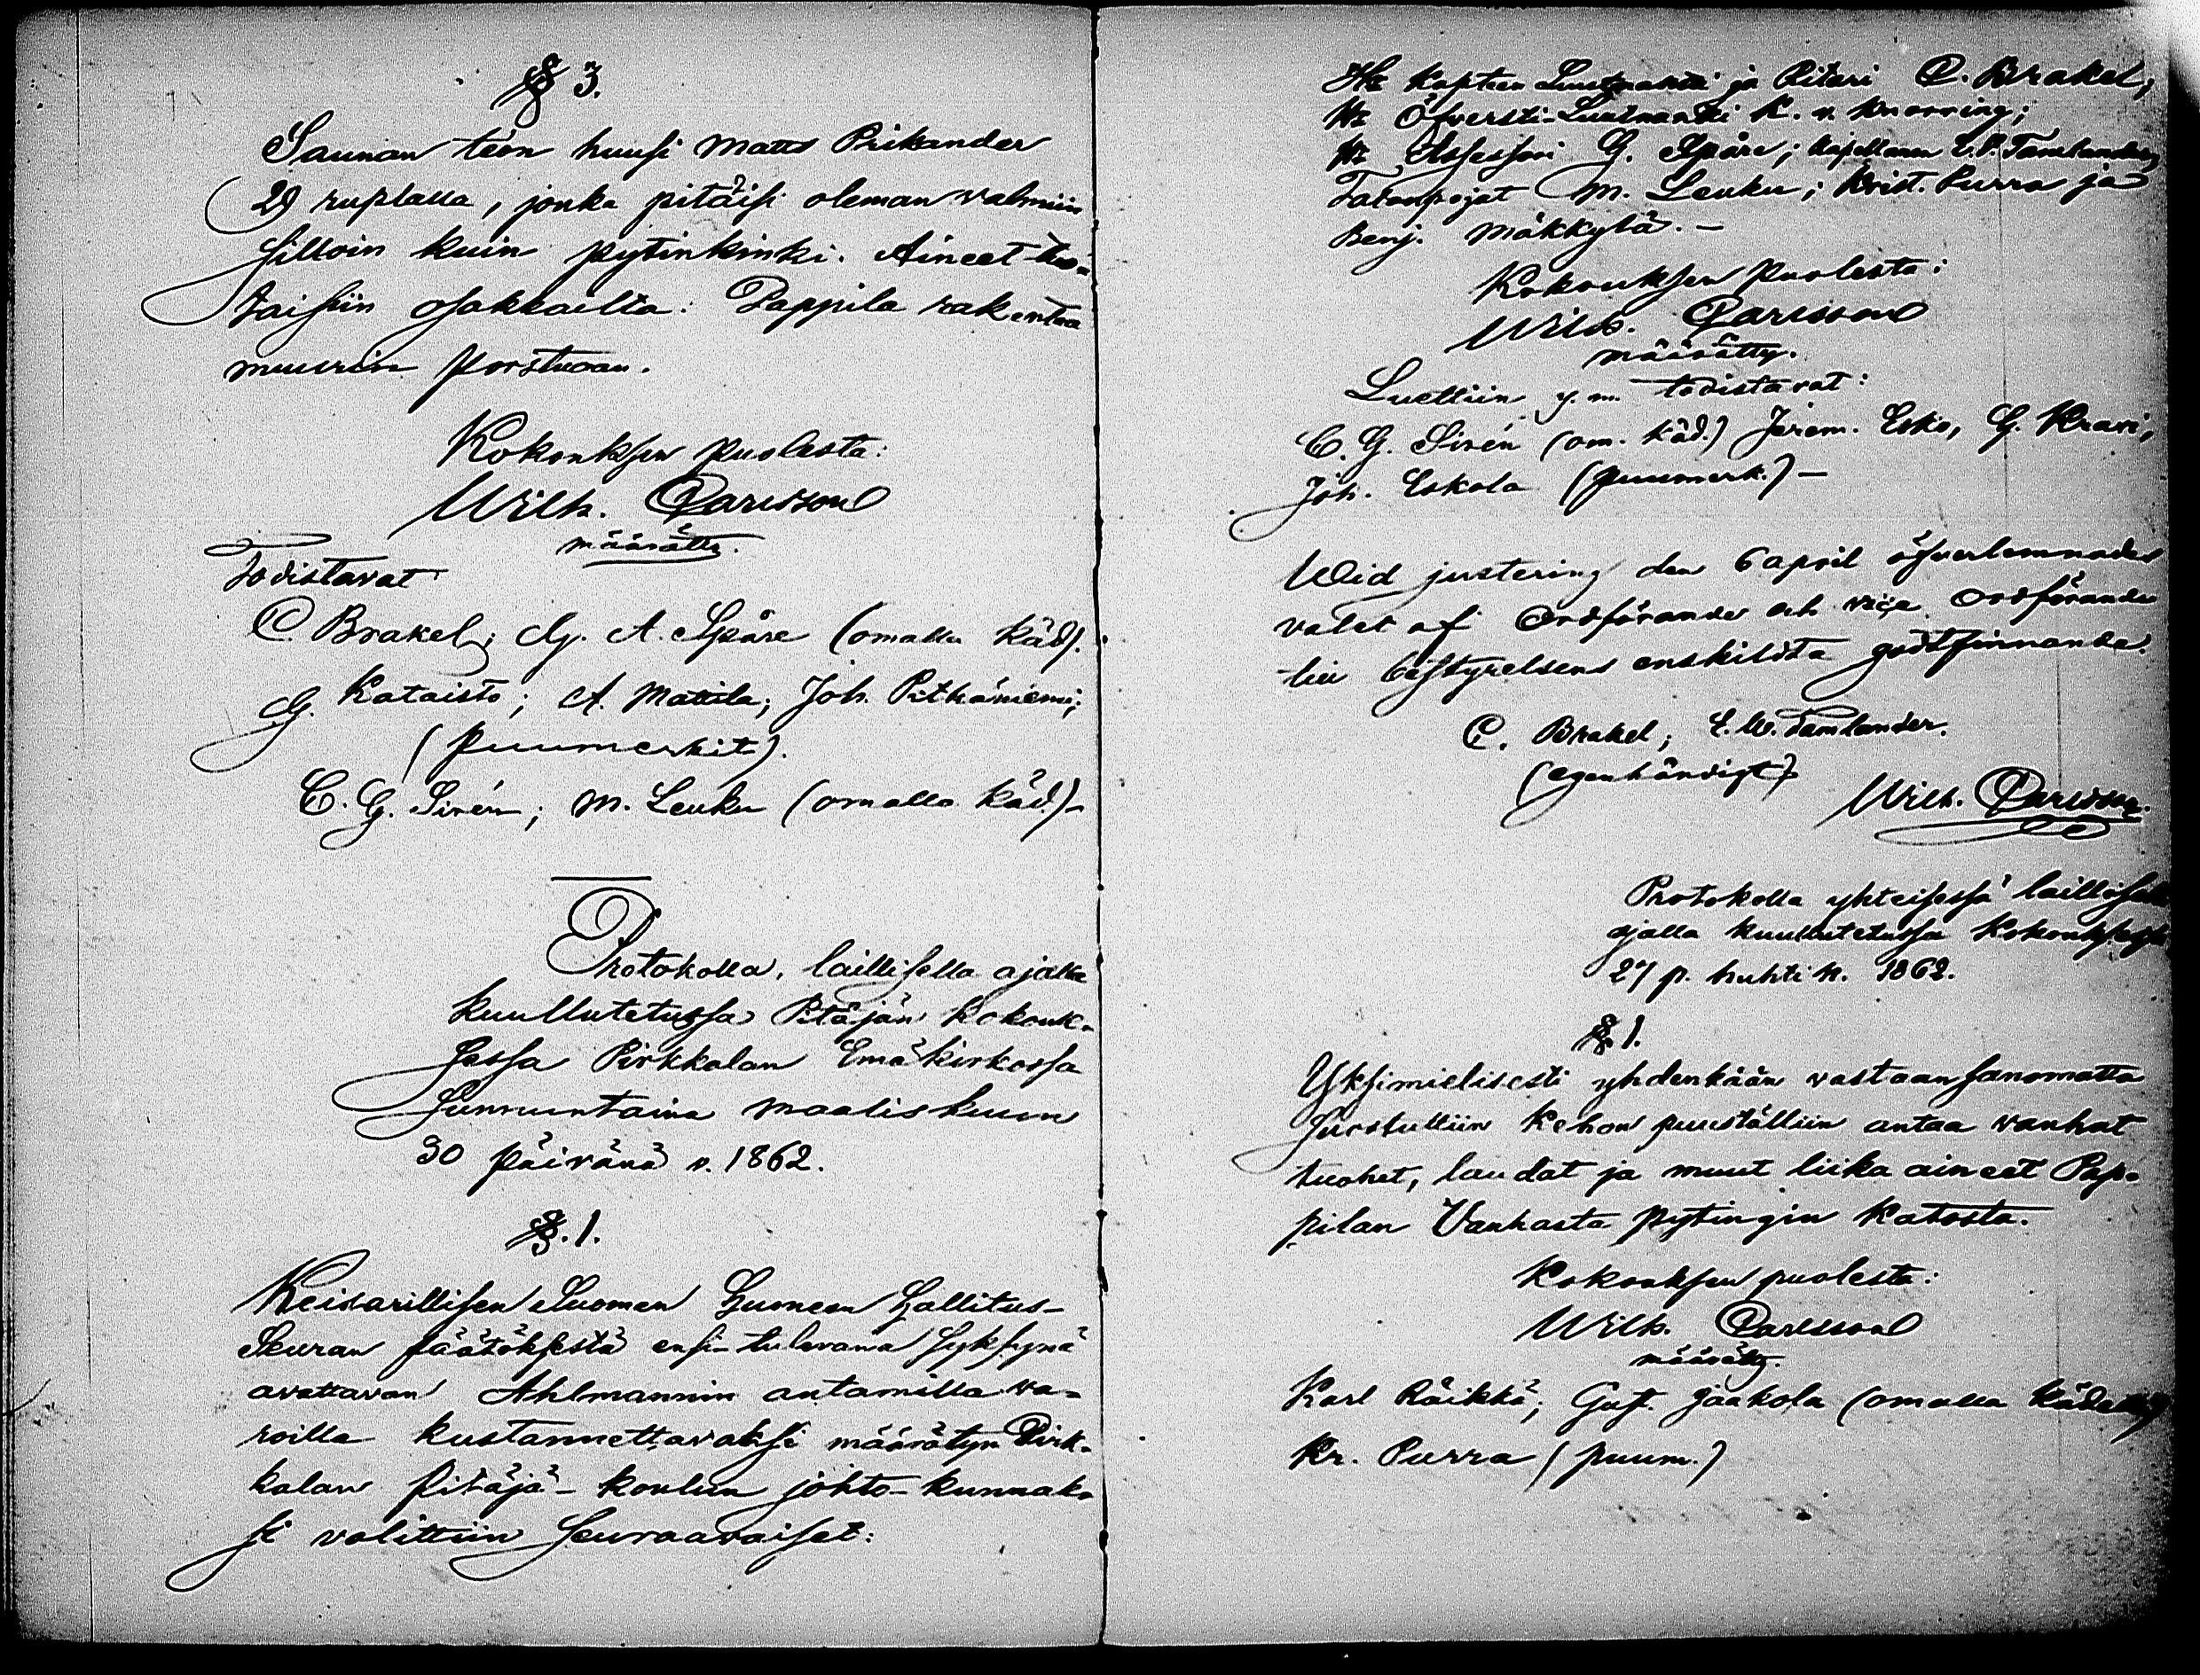 § 3.
Saunan teon huusi Matts Prikander
29 ruplalla, jonka pitäisi oleman valmiin
silloin kuin pytinkinki. Aineet tuo-
taisiin osakkailta. Pappila rakentaa
muurin porstuaan.
Kokouksen puolesta:
Wilh. Carlsson
määrätty.
Todistavat
C. Brakel; G. A. Spåre (omalla käd).
G. Kataisto; A. Mattila; Joh. Pitkäniemi;
(puumerkit).
C. G. Sirén; M. Leuku (omalla käd.)-
Protokolla, laillisella ajalla
kuullutetussa Pitäjän kokouk-
sessa Pirkkalan Emäkirkossa
Sunnuntaina maaliskuun
30 päivänä v. 1862.
§. 1.
Keisarillisen Suomen Huoneen Hallitus-
Seuran päätöksestä ensi-tulevana syksynä
avattavan Ahlmannin antamilla va-
roilla kustannettavaksi määrätyn Pirk-
kalan pitäjä-koulun johto-kunnak-
si valittiin seuraavaiset:
Hr Kapteen Luutnantti ja Ritari C. Brakel;
Hr Öfversti-Luutnantti K. v. Knorring;
Hr Assessori G. Spåre; Kapellaani Tamlander,
Talonpojat M. Leuku; Krist. Purra ja
Benj. Mäkkylä.-
Kokouksen puolesta:
Wilh. Carlsson
määrätty.
Luettiin y.m. todistavat:
C. G. Sirén (om. käd.) Jerem. Esko, G. Knavi,
Joh. Eskola (puumerk.)-
Wid justering den 6 april öfverlemnades
valet af Ordförande och vice Ordförande
till Bestyrelsens enskildta godtfinnande.
C. Brakel; E. W. Tamlander.
(egenhändigt)
Wilh. Carlsson.
Protokolla yhteisessä laillisella
ajalla kuullutetussa kokouksessa
27 p. huhti k. 1862.
§. 1.
Yksimielisesti yhdenkään vastaan sanomatta
suostuttiin kehon puuställiin antaa vanhat
tuohet, laudat ja muut liika aineet Pap-
pilan Vanhasta pytingin katosta.
Kokouksen puolesta:
Wilh. Carlsson
määrätty.
Karl Räikkä; Gust. Jaakola (omalla kädellä)
Kr. Purra (puum.)